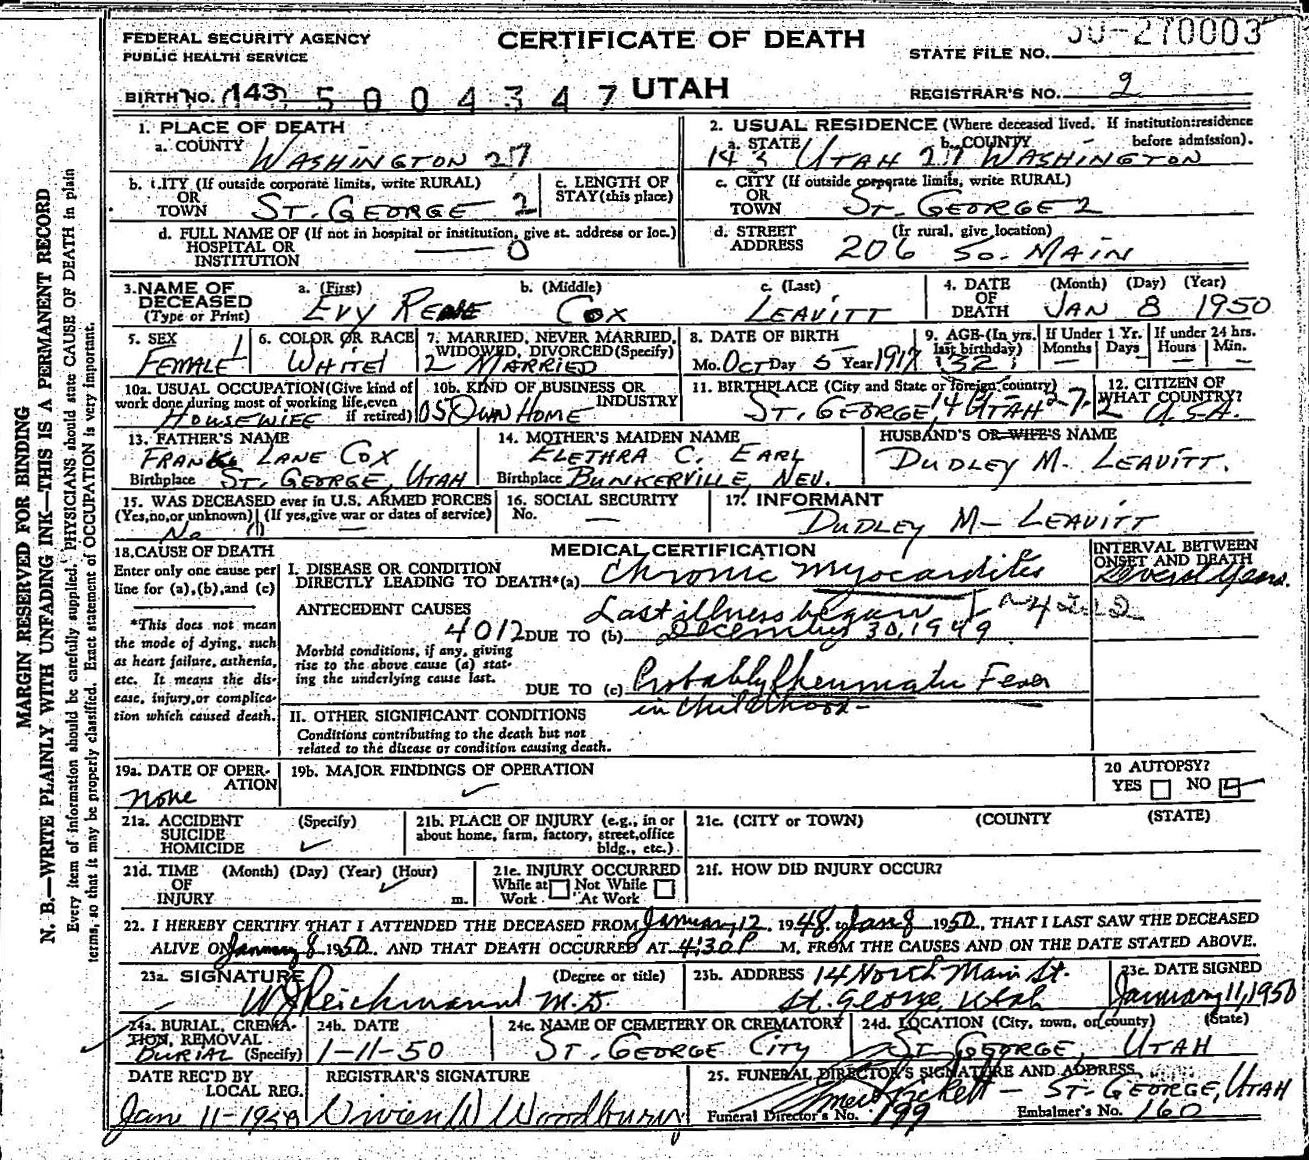 FEDERAL SECURITY AGENCY
PUBLIC HEALTH SERVICE
CERTIFICATE OF DEATH
UTAH
STATE FILE NO. 50-270003
BIRTH NO. (143) 5004347
REGISTRAR'S NO. 2
MARGIN RESERVED FOR BINDING
N. B.—WRITE PLAINLY WITH UNFADING INK—THIS IS A PERMANENT RECORD
Every item of information should be carefully supplied. PHYSICIANS should state CAUSE OF DEATH in plain
terms, so that it may be properly classified. Exact statement of OCCUPATION is very important.
1. PLACE OF DEATH
a. COUNTY WASHINGTON 27
b. CITY (If outside corporate limits, write RURAL)
OR
TOWN ST. GEORGE 2
c. LENGTH OF
STAY (this place)
d. FULL NAME OF (If not in hospital or institution, give st. address or loc.)
HOSPITAL OR
INSTITUTION — 0
2. USUAL RESIDENCE (Where deceased lived. If institution: residence
before admission).
a. STATE 143 UTAH 27 b. COUNTY WASHINGTON
c. CITY (If outside corporate limits, write RURAL)
OR
TOWN ST. GEORGE 2
d. STREET (If rural, give location)
ADDRESS 206 So. MAIN
3. NAME OF
DECEASED
(Type or Print)
a. (First) b. (Middle) c. (Last)
EVY COX LEAVITT
4. DATE OF DEATH (Month) (Day) (Year)
JAN 8 1950
5. SEX
FEMALE 1
6. COLOR OR RACE
WHITE 1
7. MARRIED, NEVER MARRIED,
WIDOWED, DIVORCED (Specify)
2 MARRIED
8. DATE OF BIRTH
Mo. OCT Day 5 Year 1917
9. AGE (In yrs.
last birthday)
32
If Under 1 Yr.
Months Days
— —
If under 24 hrs.
Hours Min.
— —
10a. USUAL OCCUPATION (Give kind of
work done during most of working life, even
if retired)
HOUSEWIFE
10b. KIND OF BUSINESS OR
INDUSTRY
05 OWN HOME
11. BIRTHPLACE (City and State or foreign country)
ST. GEORGE, 14 UTAH 27-2
12. CITIZEN OF
WHAT COUNTRY?
U.S.A.
13. FATHER'S NAME
FRANK LANE COX
Birthplace ST. GEORGE, UTAH
14. MOTHER'S MAIDEN NAME
ELETHRA C. EARL
Birthplace BUNKERVILLE, NEV.
HUSBAND'S OR WIFE'S NAME
DUDLEY M. LEAVITT.
15. WAS DECEASED ever in U.S. ARMED FORCES
(Yes, no, or unknown) (If yes, give war or dates of service)
No —
16. SOCIAL SECURITY
No. —
17. INFORMANT
DUDLEY M- LEAVITT
18. CAUSE OF DEATH
Enter only one cause per
line for (a), (b), and (c)
*This does not mean
the mode of dying, such
as heart failure, asthenia,
etc. It means the dis-
ease, injury, or complica-
tion which caused death.
MEDICAL CERTIFICATION
I. DISEASE OR CONDITION
DIRECTLY LEADING TO DEATH*(a) Chronic Myocarditis
INTERVAL BETWEEN
ONSET AND DEATH
Several years.
ANTECEDENT CAUSES
Last illness began
4012 DUE TO (b) December 30, 1949.
Morbid conditions, if any, giving
rise to the above cause (a) stat-
ing the underlying cause last.
DUE TO (c) Probably Rheumatic Fever
in childhood-
II. OTHER SIGNIFICANT CONDITIONS
Conditions contributing to the death but not
related to the disease or condition causing death.
19a. DATE OF OPER-
ATION
none
19b. MAJOR FINDINGS OF OPERATION
20 AUTOPSY?
YES NO
21a. ACCIDENT (Specify)
SUICIDE
HOMICIDE
21b. PLACE OF INJURY (e.g., in or
about home, farm, factory, street, office
bldg., etc.)
21c. (CITY or TOWN) (COUNTY (STATE)
21d. TIME (Month) (Day) (Year) (Hour)
OF
INJURY m.
21e. INJURY OCCURRED
While at Not While
Work At Work
21f. HOW DID INJURY OCCUR?
22. I HEREBY CERTIFY THAT I ATTENDED THE DECEASED FROM January 12, 1948, to Jan 8 1950, THAT I LAST SAW THE DECEASED
ALIVE ON January 8 1950. AND THAT DEATH OCCURRED AT 4:30 P M. FROM THE CAUSES AND ON THE DATE STATED ABOVE.
23a. SIGNATURE (Degree or title)
W J Reichmann M.D.
23b. ADDRESS 14 North Main St.
St. George, Utah
23c. DATE SIGNED
January 11, 1950
24a. BURIAL, CREMA-
TION, REMOVAL
BURIAL (Specify)
24b. DATE
1-11-50
24c. NAME OF CEMETERY OR CREMATORY
ST. GEORGE CITY
24d. LOCATION (City, town, or county) (State)
ST. GEORGE, UTAH
DATE REC'D BY
LOCAL REG.
Jan 11-1950
REGISTRAR'S SIGNATURE
Vivien W Woodbury
25. FUNERAL DIRECTOR'S SIGNATURE AND ADDRESS
Pickett — ST. GEORGE, UTAH
Funeral Director's No. 199 Embalmer's No. 160